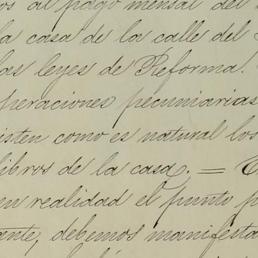 os al pago mensal del
la casa de la calle del
las leyes de Reforma.
peraciones pecuniarias
isten como es natural los
libros de la casa. =
en realidad el punto p
ante, debemos manifesta